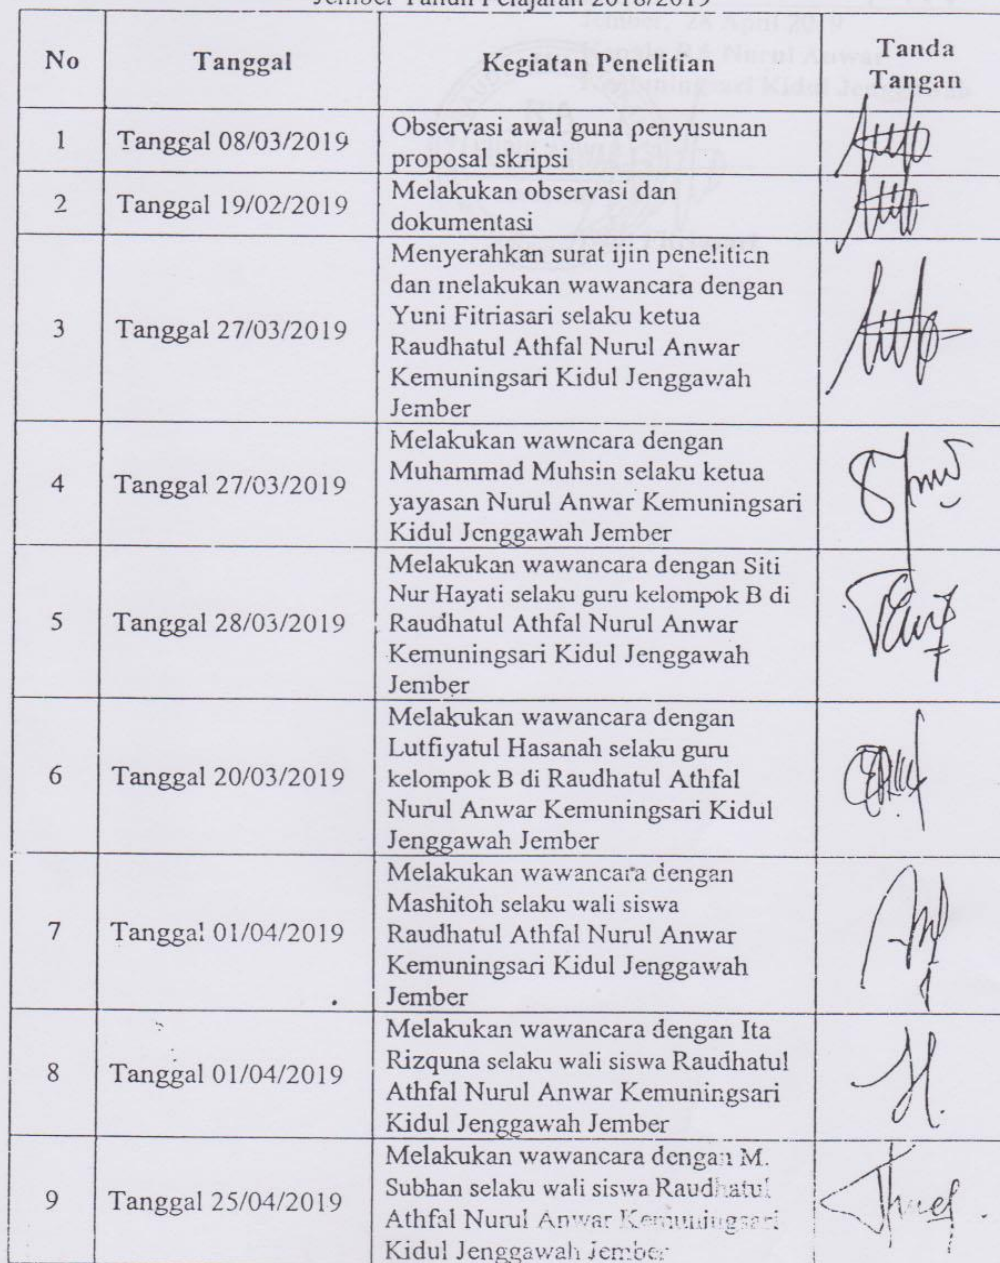 Jember Tahun Pelajaran 2018/2019
No Tanggal Kegiatan Penelitian Tanda
Tangan
1 Tanggal 08/03/2019 Observasi awal guna penyusunan
proposal skripsi
2 Tanggal 19/02/2019 Melakukan observasi dan
dokumentasi
3 Tanggal 27/03/2019 Menyerahkan surat ijin penelitian
dan melakukan wawancara dengan
Yuni Fitriasari selaku ketua
Raudhatul Athfal Nurul Anwar
Kemuningsari Kidul Jenggawah
Jember
4 Tanggal 27/03/2019 Melakukan wawncara dengan
Muhammad Muhsin selaku ketua
yayasan Nurul Anwar Kemuningsari
Kidul Jenggawah Jember
5 Tanggal 28/03/2019 Melakukan wawancara dengan Siti
Nur Hayati selaku guru kelompok B di
Raudhatul Athfal Nurul Anwar
Kemuningsari Kidul Jenggawah
Jember
6 Tanggal 20/03/2019 Melakukan wawancara dengan
Lutfiyatul Hasanah selaku guru
kelompok B di Raudhatul Athfal
Nurul Anwar Kemuningsari Kidul
Jenggawah Jember
7 Tanggal 01/04/2019 Melakukan wawancara dengan
Mashitoh selaku wali siswa
Raudhatul Athfal Nurul Anwar
Kemuningsari Kidul Jenggawah
Jember
8 Tanggal 01/04/2019 Melakukan wawancara dengan Ita
Rizquna selaku wali siswa Raudhatul
Athfal Nurul Anwar Kemuningsari
Kidul Jenggawah Jember
9 Tanggal 25/04/2019 Melakukan wawancara dengan M.
Subhan selaku wali siswa Raudhatul
Athfal Nurul Anwar Kemuningsari
Kidul Jenggawah Jember